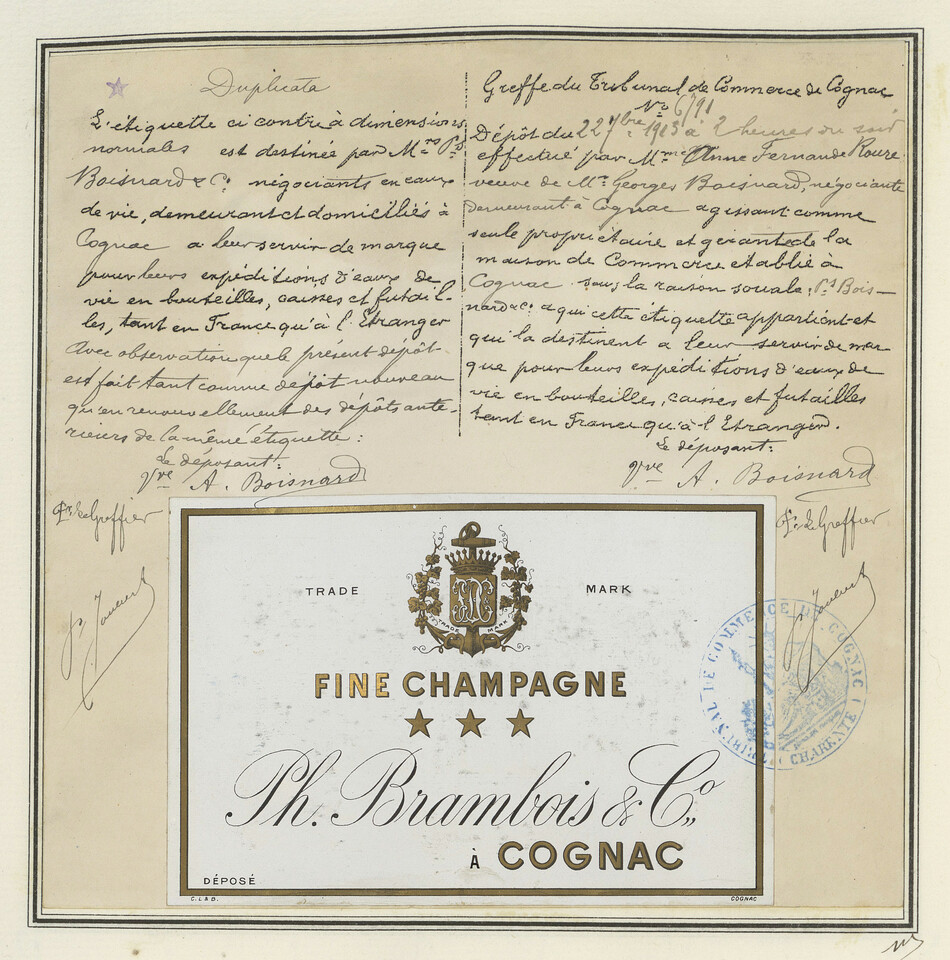 Duplicata
L'étiquette ci contre à dimensions
normales est destinée par Mrs Ps
Boisnard & Co négociants en eaux
de vie, demeurant et domiciliés à
Cognac a leur servir de marque
pour leurs expéditions d'eaux de
vie en bouteilles, caisses et futail-
les, tant en France qu'à l'Etranger
Avec observation que le présent dépôt
est fait tant comme dépôt nouveau
qu'en renouvellement des dépôts anté-
rieurs de la même étiquette :
Le déposant :
Vve A. Boisnard
Le Greffier
Greffe du Tribunal de Commerce de Cognac
No 6791
Dépôt du 22 7bre 1903 à 2 heures du soir
effectué par Mme Anne Fernande Roure
veuve de Mr Georges Boisnard, négociante
demeurant à Cognac agissant comme
seule propriétaire et gérante de la
maison de Commerce établie à
Cognac sous la raison sociale, Ps Bois-
nard & Co a qui cette étiquette appartient et
qui la destinent a leur servir de mar
que pour leurs expéditions d'eaux de
vie en bouteilles, caisses et futailles
tant en France qu'à l'Etranger.
Le déposant :
Vve A. Boisnard
Le Greffier
TRADE MARK
TRADE MARK
FINE CHAMPAGNE
Ph. Brambois & Co
À COGNAC
DÉPOSÉ
C. L & D. COGNAC
TRIBUNAL DE COMMERCE DE COGNAC
CHARENTE